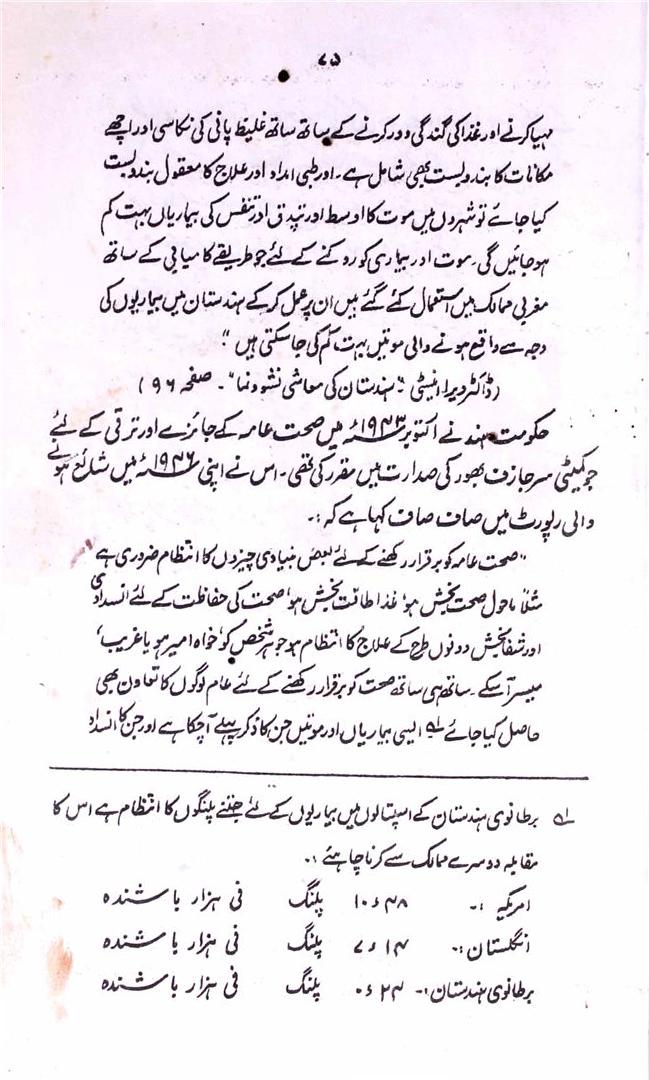 ۸۵
مہیا کرنے اور غذا کی گندگی دور کرنے کے ساتھ ساتھ غلیظ پانی کی نکاسی اور اچھے
مکانات کا بندوبست بھی شامل ہے۔ اور طبی امداد اور علاج کا معقول بندوبست
کیا جائے تو شہروں میں موت کا اوسط اور تپدق اور تنفس کی بیماریاں بہت کم
ہو جائیں گی۔ موت اور بیماری کو روکنے کے لئے جو طریقے کامیابی کے ساتھ
مغربی ممالک میں استعمال کئے گئے ہیں ان پر عمل کر کے ہندستان میں بیماریوں کی
وجہ سے واقع ہونے والی موتیں بہت کم کی جا سکتی ہیں"
(ڈاکٹر ویرا اینسٹی۔ "ہندستان کی معاشی نشوونما"۔ صفحہ ۹۶)
حکومت ہند نے اکتوبر ۱۹۴۳ء میں صحت عامہ کے جائزے اور ترقی کے لئے
جو کمیٹی سر جازف بھور کی صدارت میں مقرر کی تھی۔ اس نے اپنی ۱۹۴۶ء میں شائع ہونے
والی رپورٹ میں صاف صاف کہا ہے کہ:۔
"صحت عامہ کو برقرار رکھنے کے لئے بعض بنیادی چیزوں کا انتظام ضروری ہے
مثلاً ماحول صحت بخش ہو، غذا طاقت بخش ہو، صحت کی حفاظت کے لئے انسدادی
اور شفا بخش دونوں طرح کے علاج کا انتظام ہو جو ہر شخص کو، خواہ امیر ہو یا غریب،
میسر آ سکے۔ ساتھ ہی ساتھ صحت کو برقرار رکھنے کے لئے عام لوگوں کا تعاون بھی
حاصل کیا جائے ؎۱ ایسی بیماریاں اور موتیں جن کا ذکر پہلے آ چکا ہے اور جن کا انسداد
؎۱ برطانوی ہندستان کے اسپتالوں میں بیماریوں کے لئے جتنے پلنگوں کا انتظام ہے اس کا
مقابلہ دوسرے ممالک سے کرنا چاہئے:۔
امریکہ:۔ ۱۰ء۴۸ پلنگ فی ہزار باشندہ
انگلستان:۔ ۷ء۱۴ پلنگ فی ہزار باشندہ
برطانوی ہندستان:۔ ۰ء۲۴ پلنگ فی ہزار باشندہ